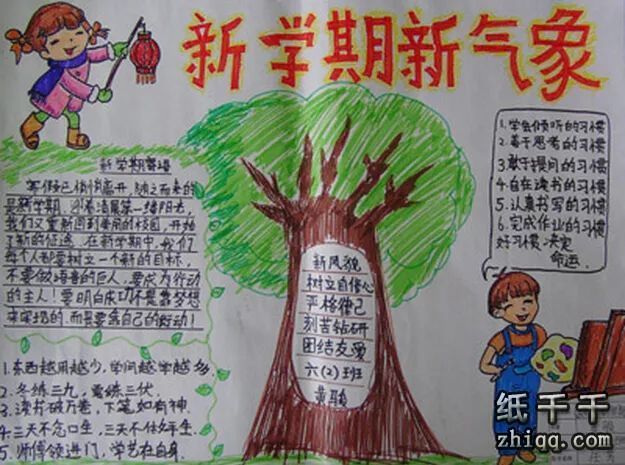 新学期新气象
新学期
寒假已悄悄离开,随之而来的
是新学期,迎着清晨第一缕阳光,
我们又重新回到美丽的校园,开始
了新的征途。在新学期中,我们
每个人都要树立一个新的目标,
不要做语言的巨人,要成为行动
的主人!要明白成功不是靠梦想
来实现的,而是要靠自己的行动!
1.东西越用越少,学问越学越多.
2.冬练三九,夏练三伏.
3.读书破万卷,下笔如有神.
4.三天不念口生,三天不做手生.
5.师傅领进门,学艺在自身.
新风貌
树立自信心
严格律己
刻苦钻研
团结友爱
六(2)班
黄
1.学会倾听的习惯
2.善于思考的习惯
3.敢于提问的习惯
4.自在读书的习惯
5.认真书写的习惯
6.完成作业的习惯
好习惯,决定
命运.
纸千千
zhiqq.com